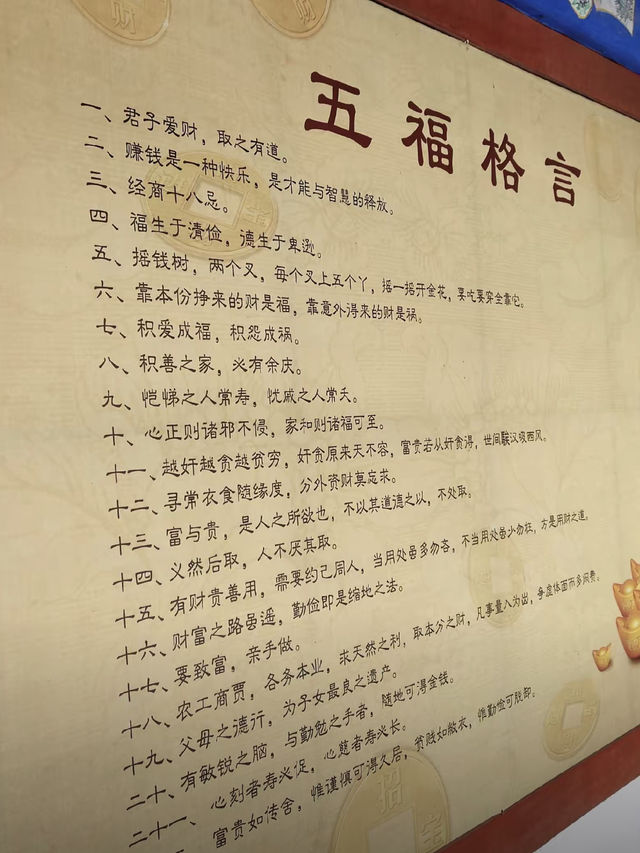 五福格言
一、君子爱财，取之有道。
二、赚钱是一种快乐，是才能与智慧的释放。
三、经商十八忌。
四、福生于清俭，德生于卑逊。
五、摇钱树，两个叉，每个叉上五个丫，摇一摇开金花，要吃要穿全靠它。
六、靠本份挣来的财是福，靠意外得来的财是祸。
七、积爱成福，积怨成祸。
八、积善之家，必有余庆。
九、恺悌之人常寿，忧戚之人常夭。
十、心正则诸邪不侵，家和则诸福可至。
十一、越奸越贪越贫穷，奸贪原来天不容，富贵若从奸贪得，世间騃汉吸西风。
十二、寻常衣食随缘度，分外资财莫忘求。
十三、富与贵，是人之所欲也，不以其道德之以，不处取。
十四、义然后取，人不厌其取。
十五、有财贵善用，需要约己周人，当用处虽多勿吝，不当用处虽少勿枉，方是用财之道。
十六、财富之路虽遥，勤俭即是缩地之法。
十七、要致富，亲手做。
十八、农工商贾，各务本业，求天然之利，取本分之财，凡事量入为出，争虚体面而多闲费。
十九、父母之德行，为子女最良之遗产。
二十、有敏锐之脑，与勤勉之手者，随地可得金钱。
二十一、心刻者寿必促，心慈者寿必长。
富贵如传舍，惟谨慎可得久居，贫贱如敝衣，惟勤俭可脱卸。
招
宝
财